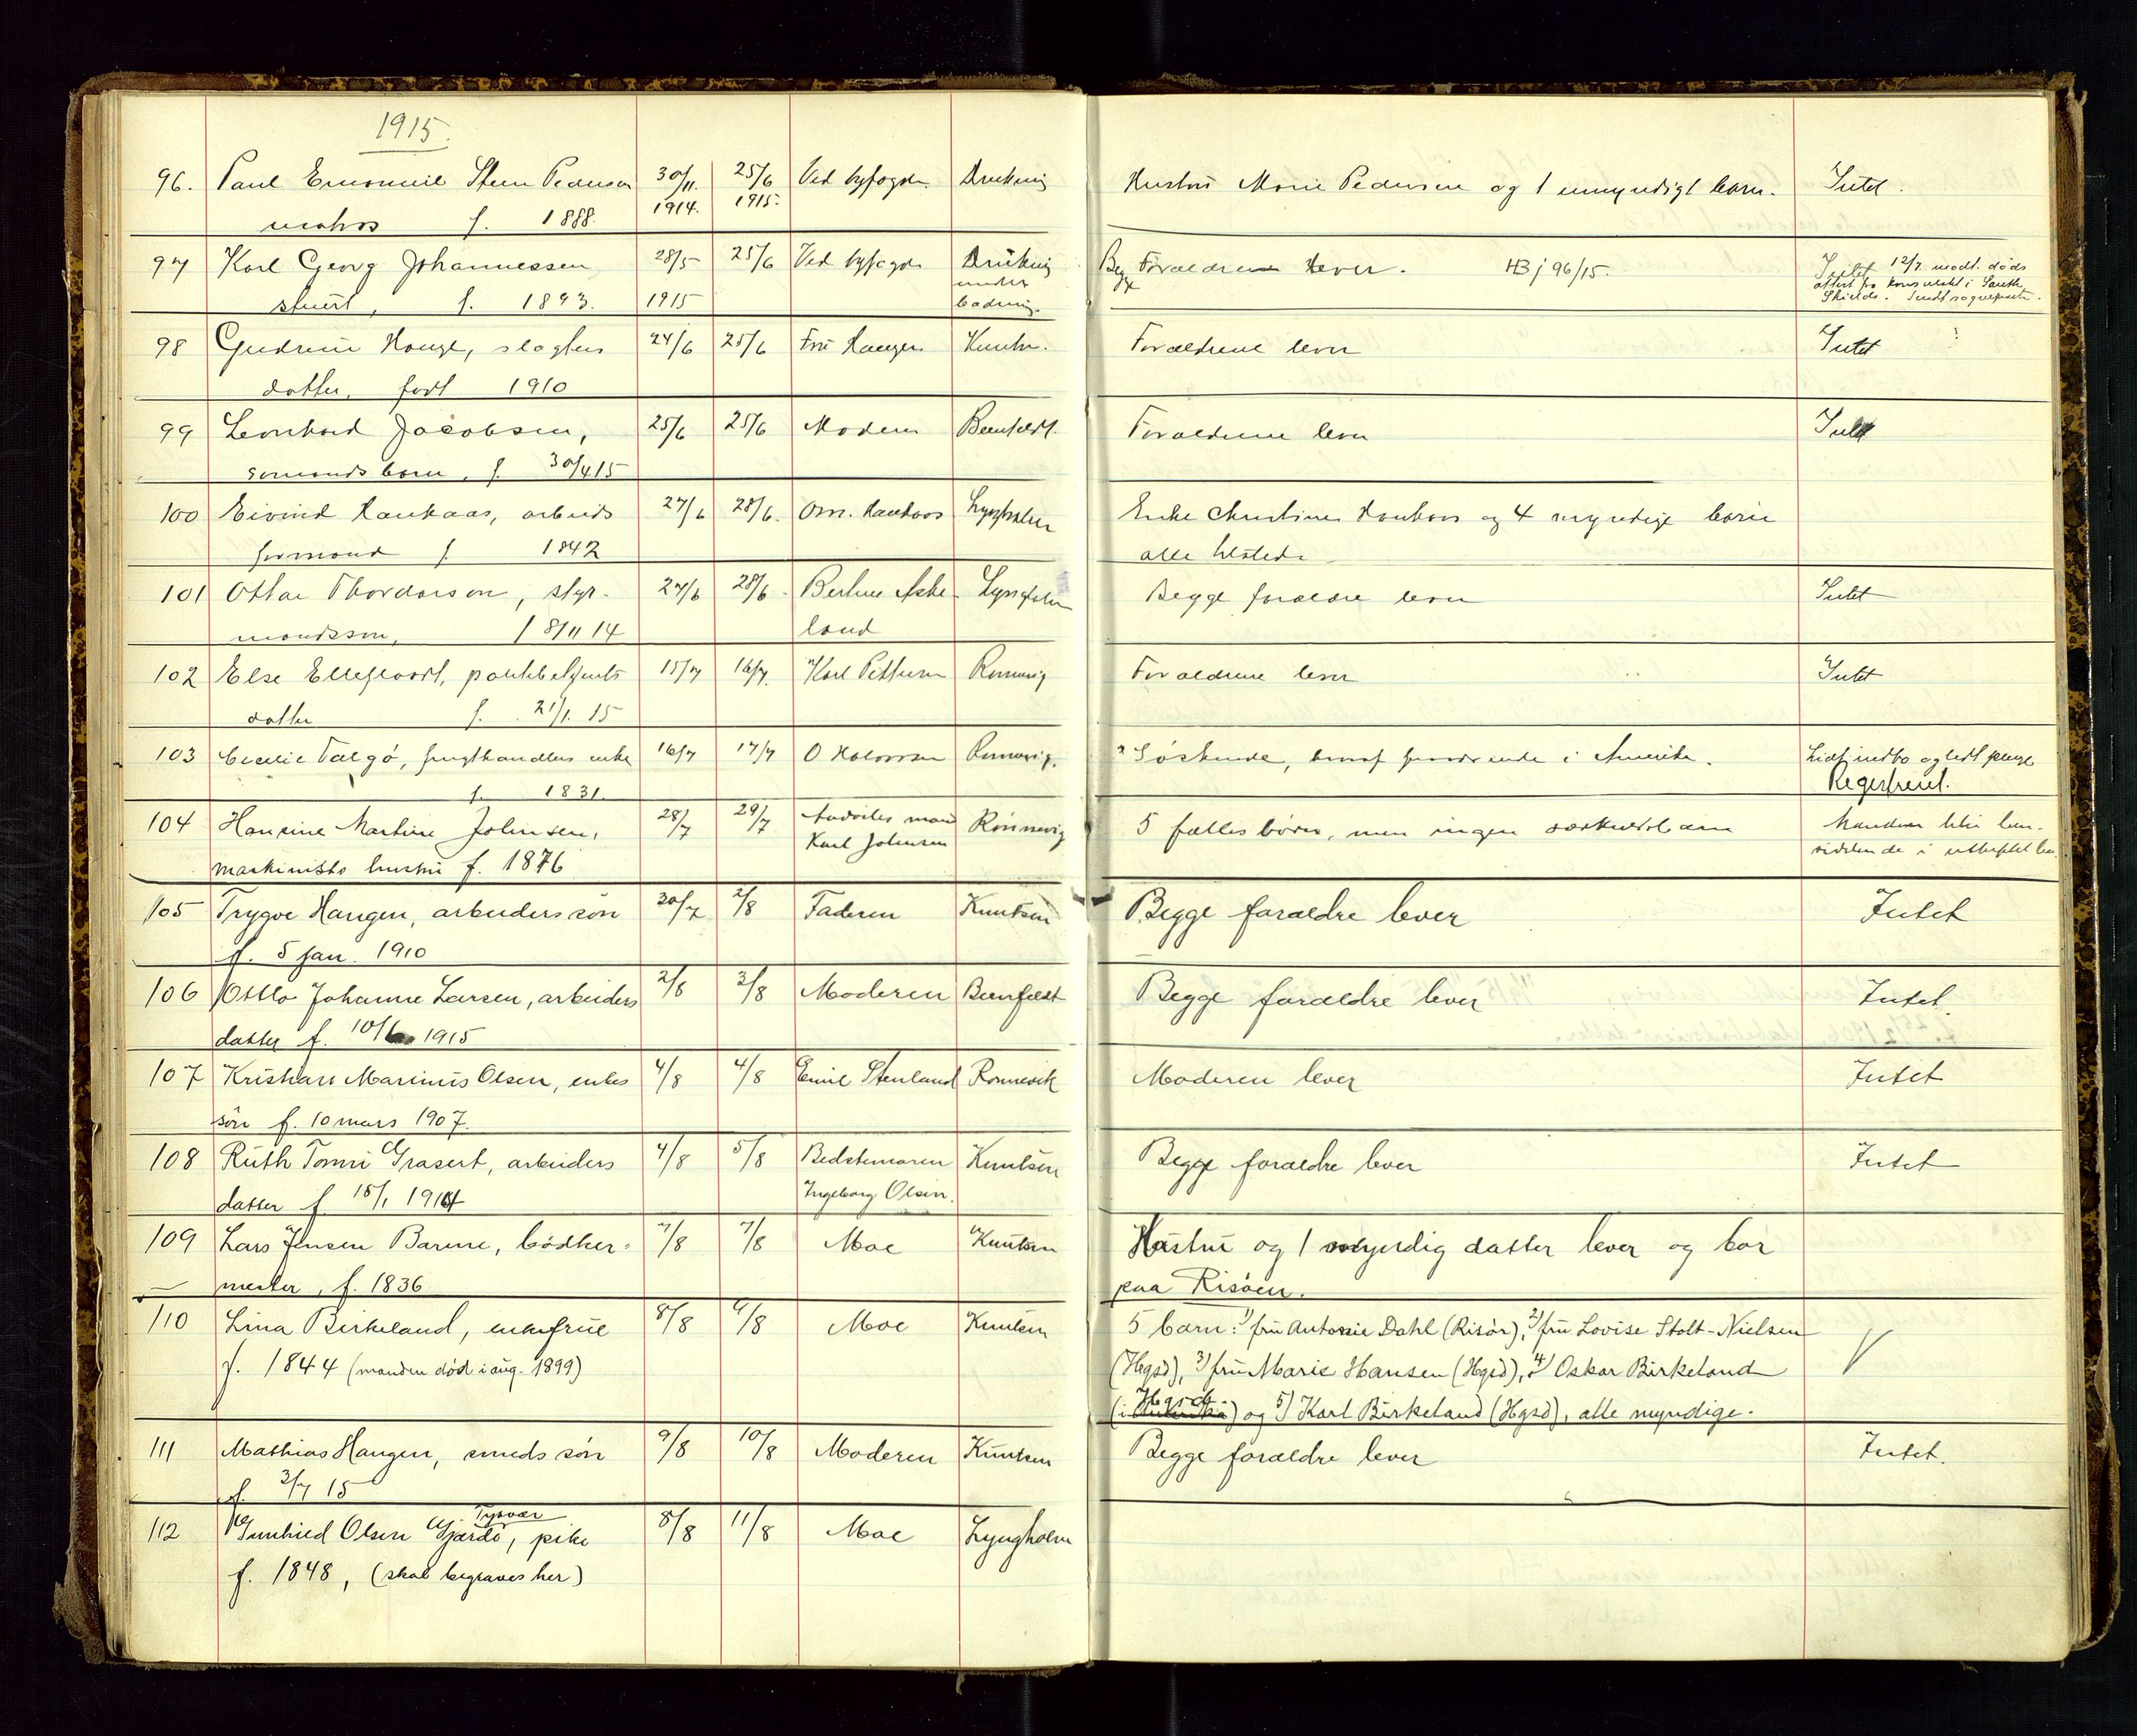 1915.
96. Paul Emanuel Steen Pedersen 30/11. 25/6 Ved byfogden Drukning Hustru Marie Pedersen og 1 umyndigt barn. Intet.
matros f. 1888. 1914. 1915.
97 Karl Georg Johannessen 28/5 25/6 Ved byfogden Drukning Begge Forældre lever. HB j 96/15. Intet 12/7 modt. døds
stuert, f. 1893. 1915 under badning. attest fra konsulatet i South Shields. Sendt sogneprest.
98 Gudrun Hauge, slagters 24/6 25/6 Fru Haugen Knuts. Forældrene lever Intet
datter, født 1910
99 Leonhard Jacobsen, 25/6 25/6 Moderen Beenfeldt. Forældrene lever Intet
sømands barn, f. 30/4 15
100 Eivind Haukaas, arbeids 27/6 28/6. Om. Haukaas Lyngholm Enke Christine Haukaas og 4 myndige børn
formand f 1842 alle tilstede
101 Ottar Thordarson, styr- 27/6 28/6. Berline Aske- Lyngholm Begge forældre lever Intet
mandssøn, f 8/11 14 land
102 Else Ellefsen, politibetjents 15/7 16/7. Karl Pettersen Rønnevig Forældrene lever Intet
datter f. 21/1. 15
103 Cecilie Talgø, frugthandlers enke 16/7 17/7 O Halvorsen Rønnevig. 2 Søskende, hvoraf i Amerika. Lidt indbo og lidt penge
f. 1831. Registreret.
104 Hansine Martine Johnsen, 28/7 29/7 Avdødes mand Rønnevig 5 fælles børn, men ingen særkuldsbarn Manden blir hen-
maskinists hustru f. 1876 Karl Johnsen siddende i uskiftet bo
105 Trygve Haugen, arbeiders søn 30/7 2/8 Faderen Knutsen Begge forældre lever Intet
f. 5 jan. 1910
106 Otilo Johanne Larsen, arbeiders 2/8 3/8 Moderen Beenfeldt Begge forældre lever Intet.
datter f. 10/6 1915
107 Kristian Marinus Olsen, enkes 4/8 4/8 Emil Stenland Rønnevik Moderen lever Intet
søn f. 10 mars 1907.
108 Ruth Tonni Grasert, arbeiders 4/8 5/8 Bedstemoren Knutsen Begge forældre lever Intet
datter f 15/1 1914 Ingeborg Olsen.
109 Lars Jensen Barene, bødker- 7/8 7/8 Moe Knutsen Hustru og 1 myndig datter lever og bor
mester, f. 1836 paa Risøen.
110 Lina Birkeland, enkefrue 8/8 9/8 Moe Knutsen 5 barn: 1) fru Antonie Dahl (Risør), 2) fru Lovise Stolt-Nielsen V
f. 1844 (manden død i aug. 1899) (Hgsd), 3) fru Marie Hansen (Hgsd), 4) Oskar Birkeland
(i Amerika Hgsd) og 5) Karl Birkeland (Hgsd), alle myndige.
111 Mathias Haugen, smeds søn 9/8 10/8 Moderen Knutsen Begge forældre lever Intet.
f. 3/7 15
112 Gunhild Olsen Gjerde, Tysvær pike 8/8 11/8 Moe Lyngholm
f. 1848, (skal begraves her)